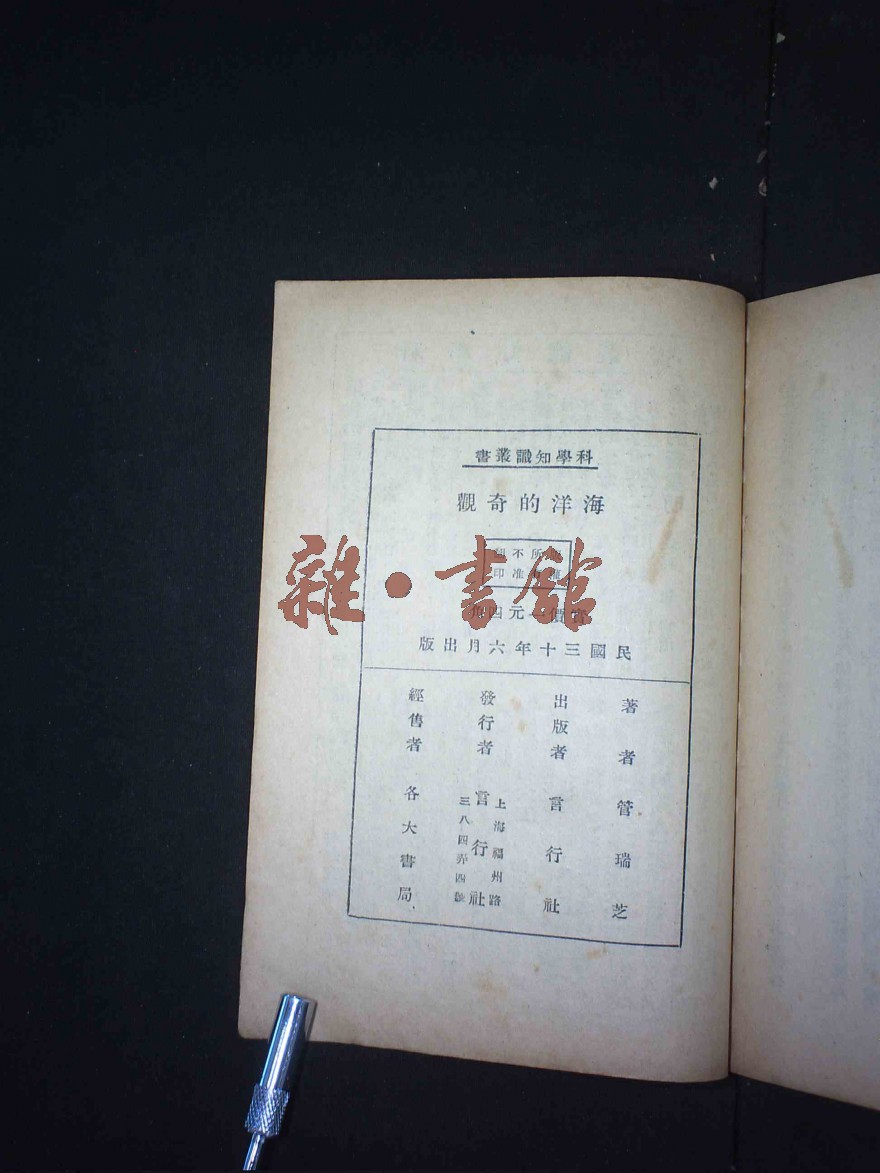 科學知識叢書
海洋的奇觀
所不
印
元四
民國三十年六月出版
著者 管瑞芝
出版者 言行社
發行者 言行社
上海福州路
三八四弄四號
經售者 各大書局
雜·書館